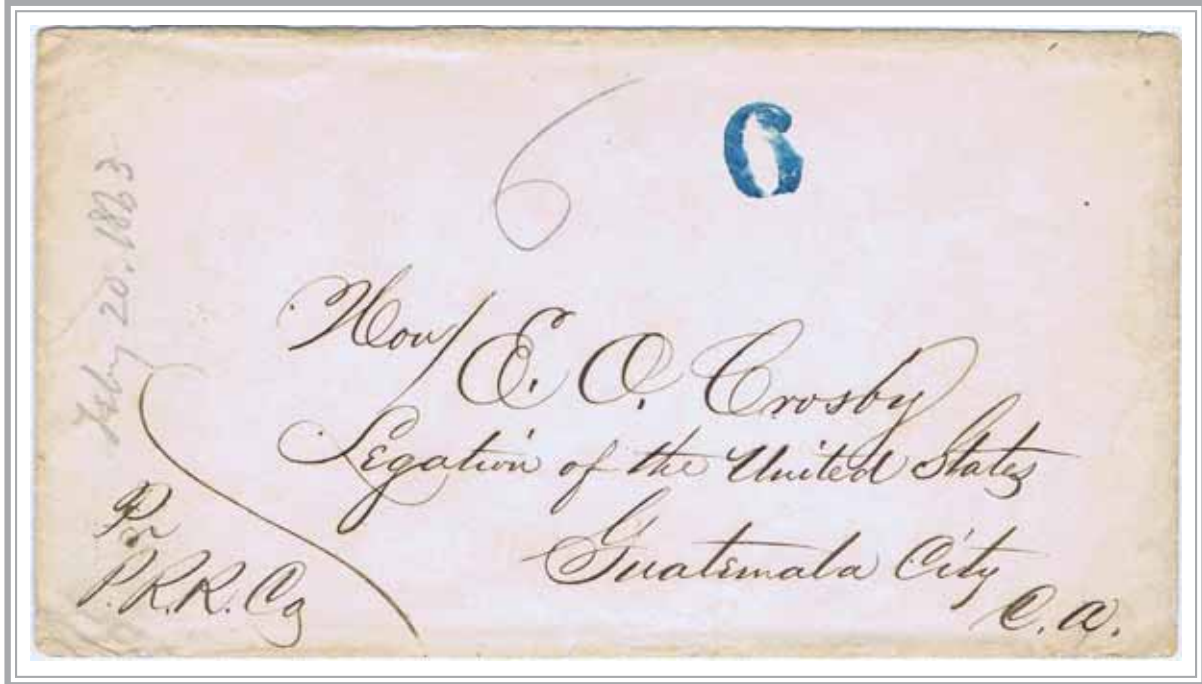 6
6
Feby 20. 1863
Hon/ E. O. Crosby
Legation of the United States
Guatemala City
C. A.
Pr
P. R. R. Co